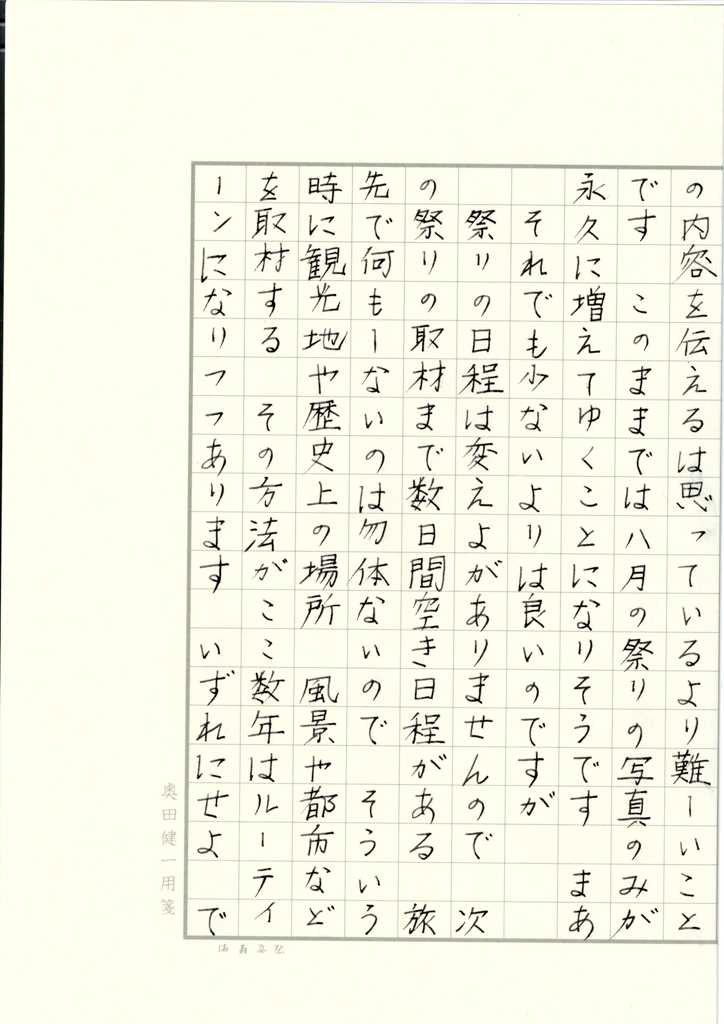 の内容を伝えるは思っているより難しいこと
です　このままでは八月の祭りの写真のみが
永久に増えてゆくことになりそうです　まあ
それでも少ないよりは良いのですが
祭りの日程は変えよがありませんので　次
の祭りの取材まで数日間空き日程がある　旅
先で何もしないのは勿体ないので　そういう
時に観光地や歴史上の場所　風景や都市など
を取材する　その方法がここ数年はルーティ
ーンになりつつあります　いずれにせよ　で
奥田健一用箋